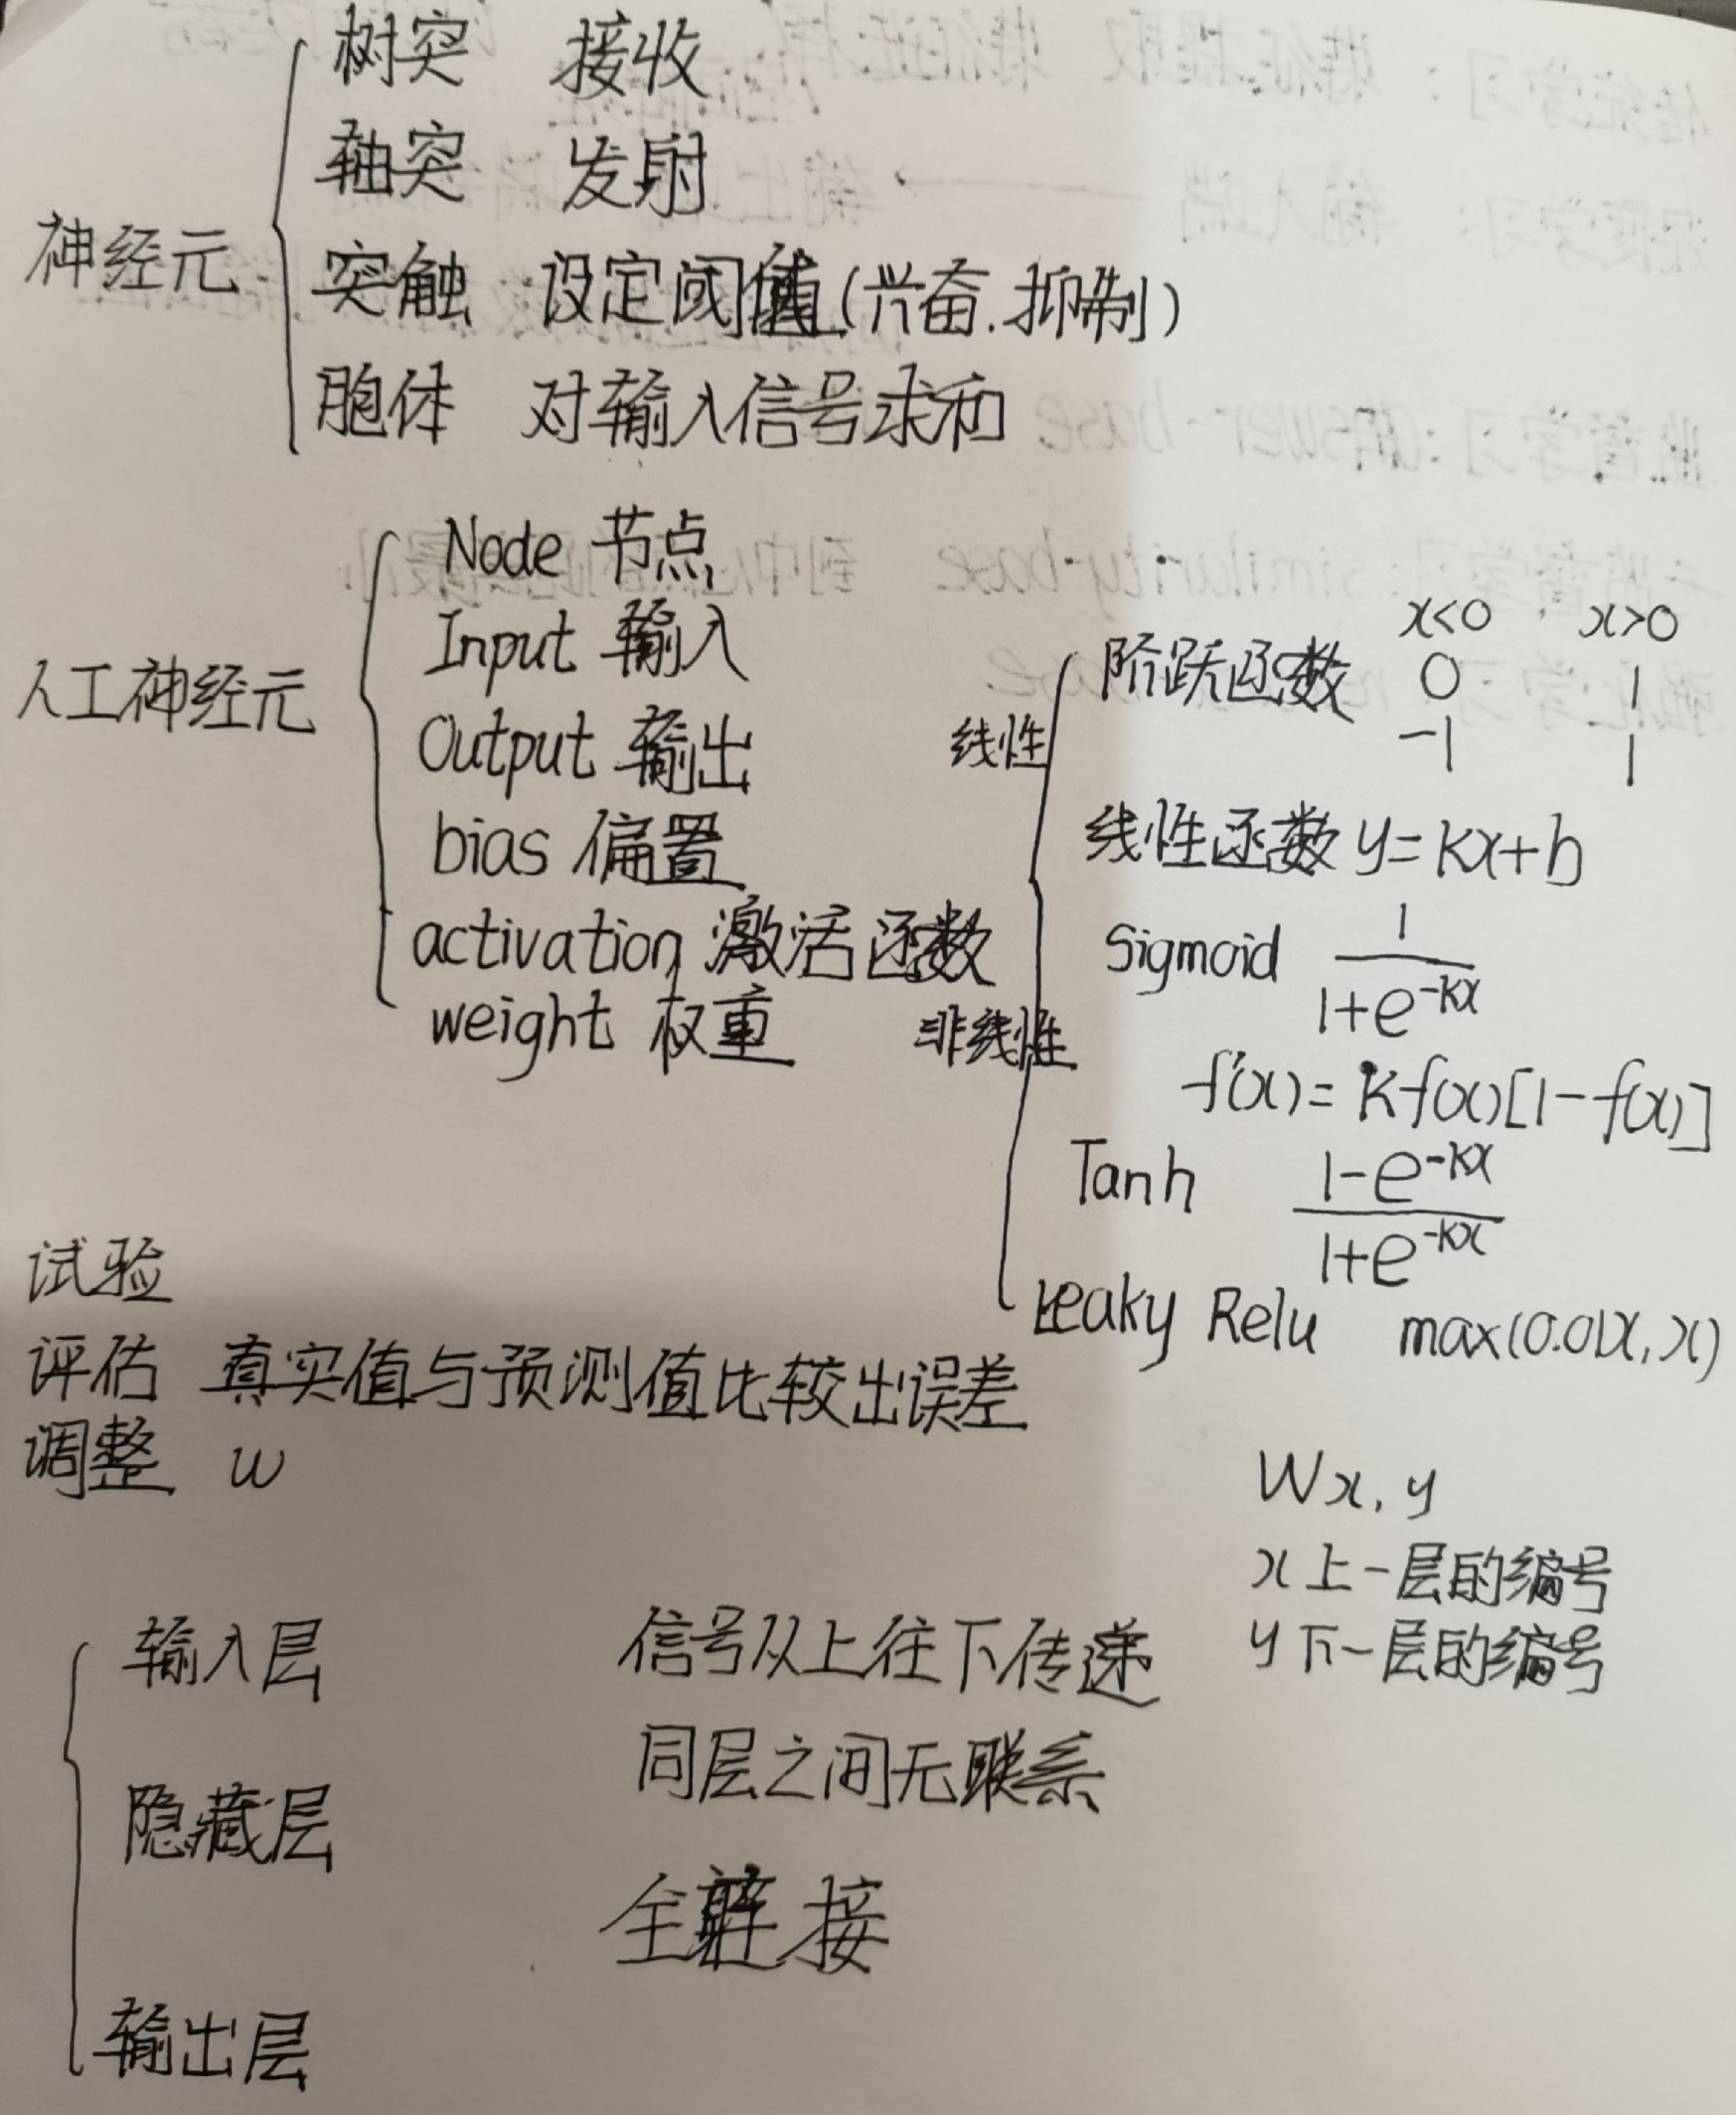 神经元
树突 接收
轴突 发射
突触 设定阈值(兴奋.抑制)
胞体 对输入信号求和
人工神经元
Node 节点
Input 输入
Output 输出
bias 偏置
activation 激活函数
weight 权重
线性
非线性
x<0 x>0
阶跃函数 0 1
-1 1
线性函数 y=kx+b
Sigmoid 1/(1+e^-kx)
f'(x)=kf(x)[1-f(x)]
Tanh (1-e^-kx)/(1+e^-kx)
Leaky Relu max(0.01x,x)
试验
评估 真实值与预测值比较出误差
调整 w
Wx,y
x上一层的编号
y下一层的编号
输入层
隐藏层
输出层
信号从上往下传递
同层之间无联系
全链接